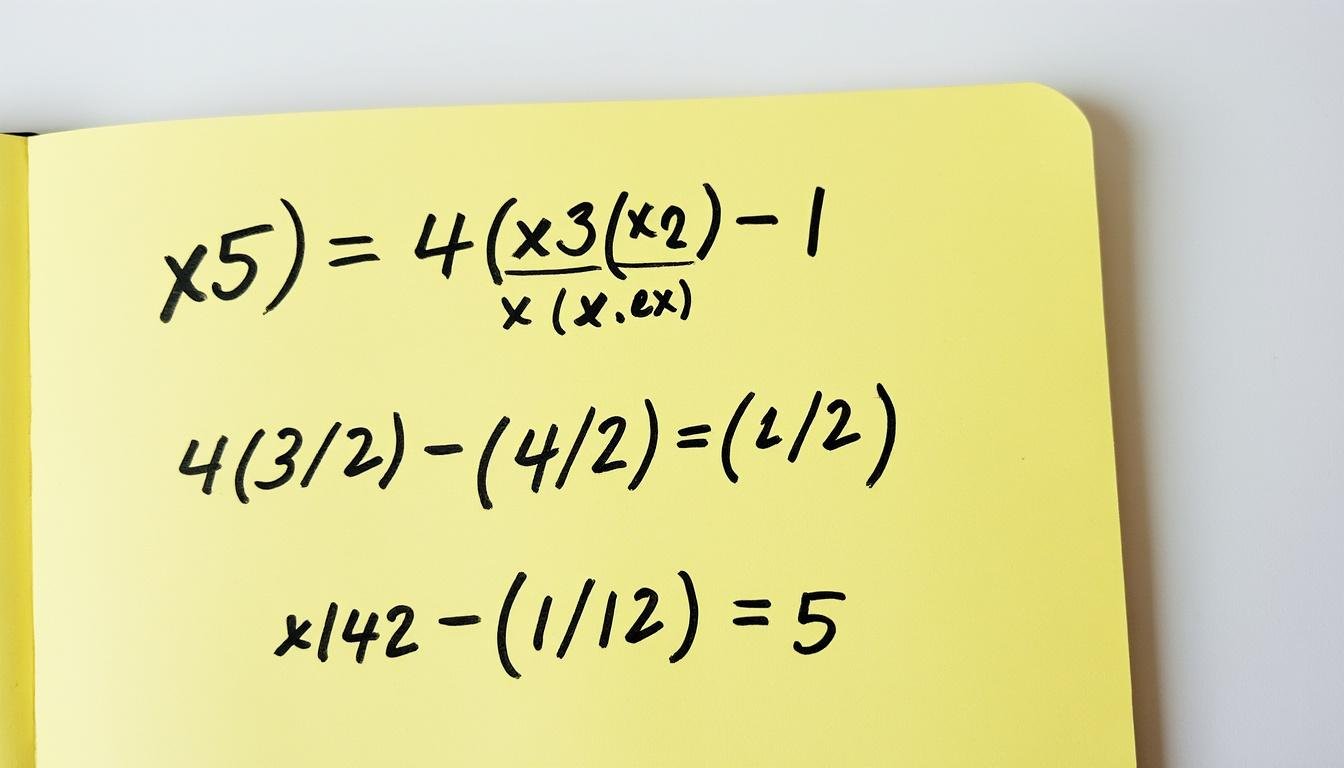 x5) = 4(x3(x2) - 1
x (x.ex)
4(3/2) - (4/2) = (1/2)
x142 - (1/12) = 5